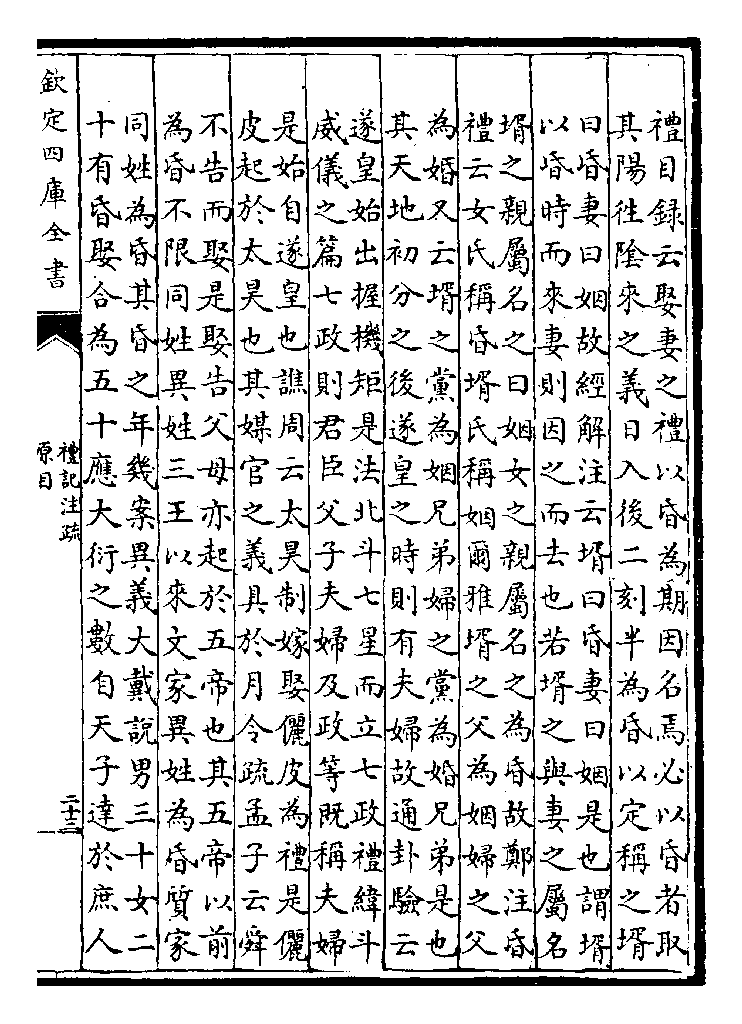 禮目録云娶妻之禮以昏為期因名焉必以昏者取
其陽徃陰來之義日入後二刻半為昏以定稱之壻
曰昏妻曰姻故經解注云壻曰昏妻曰姻是也謂壻
以昏時而來妻則因之而去也若壻之與妻之屬名
壻之親屬名之曰姻女之親屬名之為昏故鄭注昏
禮云女氏稱昏壻氏稱姻爾雅壻之父為姻婦之父
為婚又云壻之黨為姻兄弟婦之黨為婚兄弟是也
其天地初分之後遂皇之時則有夫婦故通卦驗云
遂皇始出握機矩是法北斗七星而立七政禮緯斗
威儀之篇七政則君臣父子夫婦及政等既稱夫婦
是始自遂皇也譙周云太昊制嫁娶儷皮為禮是儷
皮起於太昊也其媒官之義具於月令疏孟子云舜
不告而娶是娶告父母亦起於五帝也其五帝以前
為昏不限同姓異姓三王以來文家異姓為昏質家
同姓為昏其昏之年幾案異義大戴說男三十女二
十有昏娶合為五十應大衍之數自天子達於庶人
欽定四庫全書
禮記注疏
原目
二十三